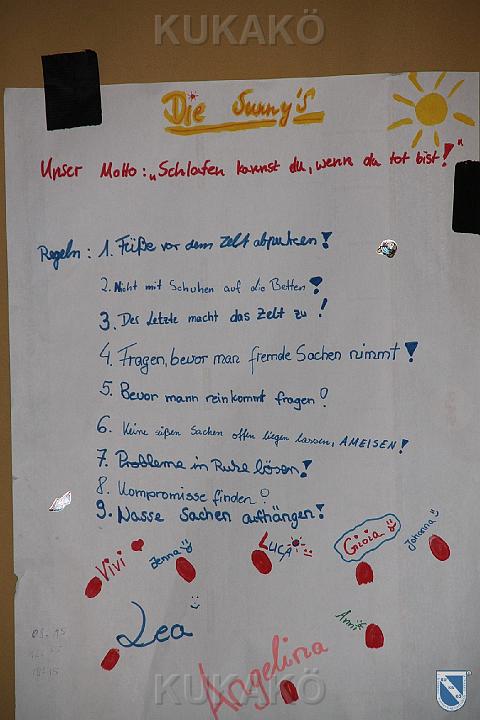 KUKAKÖ
Die Sunny's
Unser Motto: „Schlafen kannst du, wenn du tot bist!"
Regeln: 1. Füße vor dem Zelt abputzen!
2. Nicht mit Schuhen auf die Betten!
3. Der Letzte macht das Zelt zu!
4. Fragen, bevor man fremde Sachen nimmt!
5. Bevor mann reinkommt fragen!
6. Keine süßen Sachen offen liegen lassen, AMEISEN!
7. Probleme in Ruhe lösen!
8. Kompromisse finden!
9. Nasse Sachen aufhängen!
Vivi Jenna LUCA Gioia Johanna
Lea Anni
Angelina
KUKAKÖ